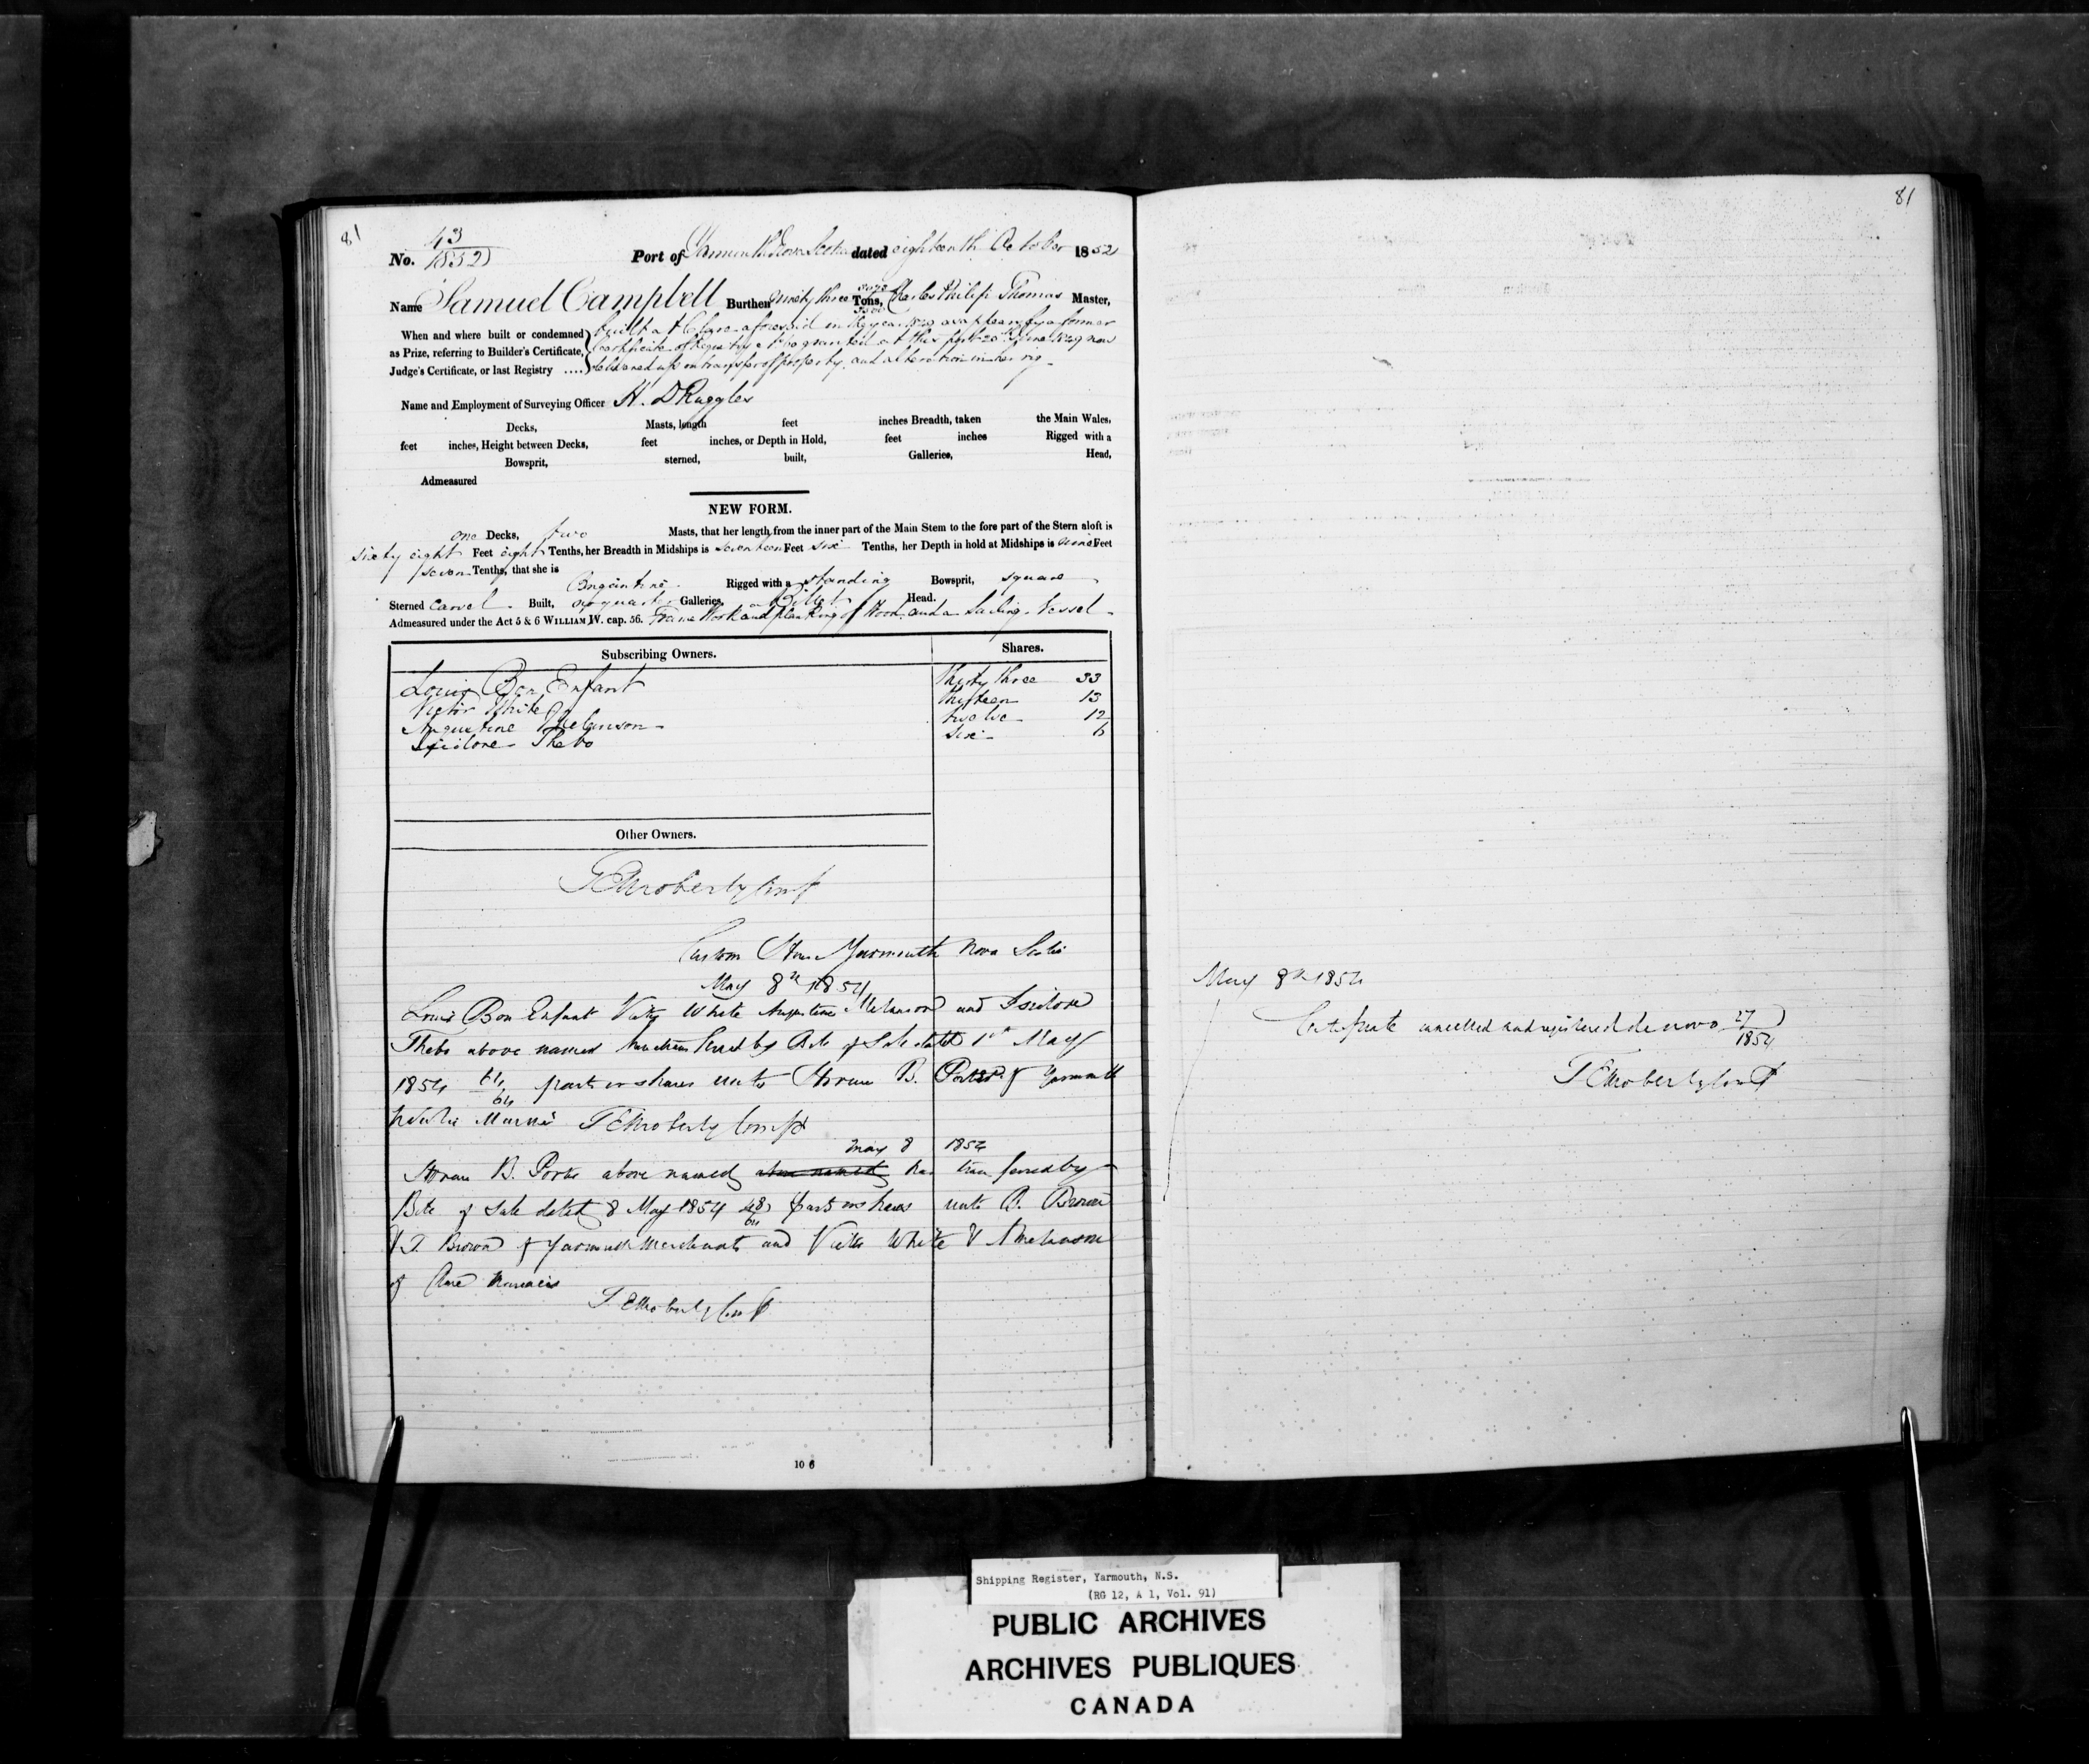 81
No. 43/1852
Port of Yarmouth Nova Scotia dated eighteenth October 1852
Name Samuel Campbell Burthen Ninety three Tons, Charles Philip Thomas Master,
When and where built or condemned built at Clare aforesaid in the year 1849 as appears by a former
as Prize, referring to Builder's Certificate, Certificate of Registry granted at this port 20th June 1849 now
Judge's Certificate, or last Registry .... delivered up on transfer of property, and alteration in her rig
Name and Employment of Surveying Officer H. D Ruggles
Decks, Masts, length feet inches Breadth, taken the Main Wales,
feet inches, Height between Decks, feet inches, or Depth in Hold, feet inches Rigged with a
Bowsprit, sterned, built, Galleries, Head,
Admeasured
NEW FORM.
one Decks, two Masts, that her length from the inner part of the Main Stem to the fore part of the Stern aloft is
sixty eight Feet eight Tenths, her Breadth in Midships is seventeen Feet six Tenths, her Depth in hold at Midships is nine Feet
seven Tenths, that she is
Brigantine Rigged with a standing Bowsprit, square
Sterned Carvel Built, no quarter Galleries, a Billet Head.
Admeasured under the Act 5 & 6 WILLIAM IV. cap. 56. Frame Work and planking of Wood and a Sailing Vessel
Subscribing Owners. Shares.
Louis Bon Enfant thirty three 33
Victor White thirteen 13
Augustine Melanson twelve 12
Isidore Thebo six 6
Other Owners.
T E Moberly Compt
Custom House Yarmouth Nova Scotia
May 8th 1854
Louis Bon Enfant Victor White Augustine Melanson and Isidore
Thebo above named have transferred by Bill of Sale dated 1st May
1854 64/64 parts or shares unto Horace B. Porter of Yarmouth
T E Moberly Compt
May 8 1854
Horace B. Porter above named above named has transferred by
Bill of Sale dated 8 May 1854 48/64 parts or shares unto B. Brown
& T. Brown of Yarmouth Merchants and Victor White & A Melanson
of Clare
T E Moberly Compt
10 6
81
May 8th 1854
Certificate cancelled and registered de novo 27/1854
T E Moberly Compt
Shipping Register, Yarmouth, N.S.
(RG 12, A 1, Vol. 91)
PUBLIC ARCHIVES
ARCHIVES PUBLIQUES
CANADA